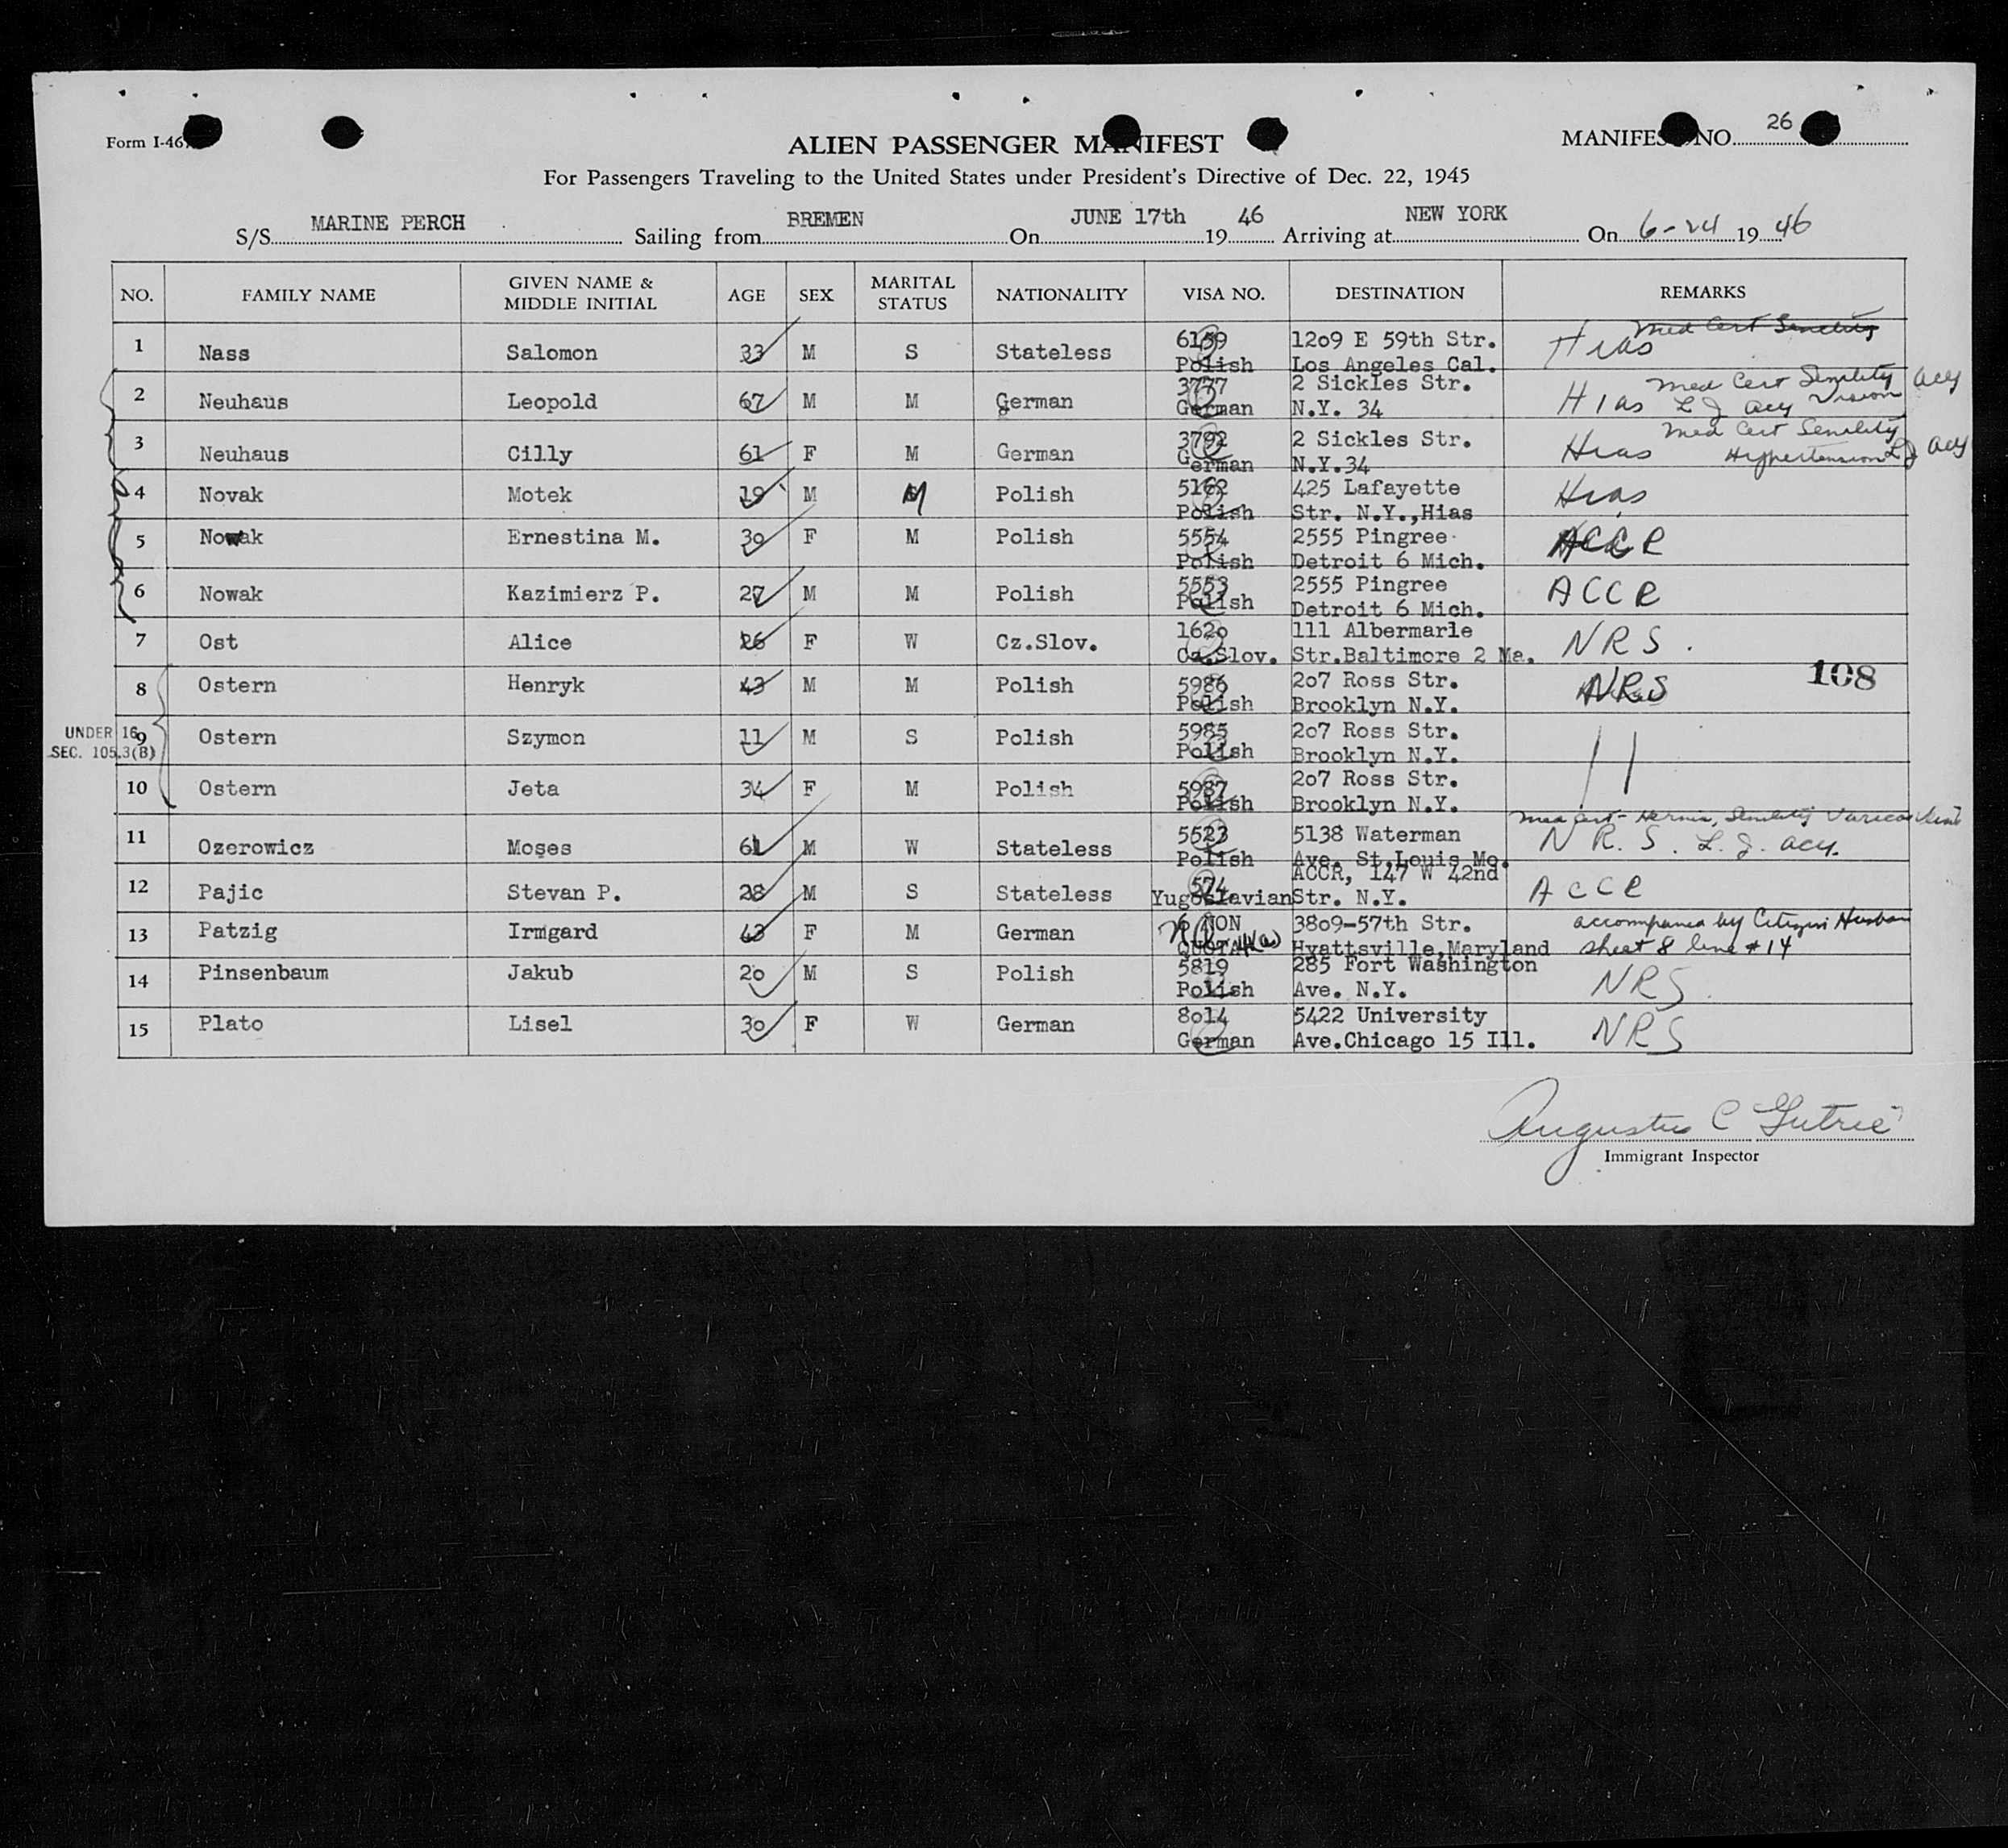 Form I-46
ALIEN PASSENGER MANIFEST
MANIFEST NO. 26
For Passengers Traveling to the United States under President's Directive of Dec. 22, 1945
S/S MARINE PERCH Sailing from BREMEN On JUNE 17th 1946 Arriving at NEW YORK On 6-24 1946
NO. FAMILY NAME GIVEN NAME & MIDDLE INITIAL AGE SEX MARITAL STATUS NATIONALITY VISA NO. DESTINATION REMARKS
1 Nass Salomon 33 M S Stateless 6159 1209 E 59th Str. Hias Med Cert Senility
Polish Los Angeles Cal.
2 Neuhaus Leopold 67 M M German 3777 2 Sickles Str. Hias Med Cert Senility acy
German N.Y. 34 L J acy Vision
3 Neuhaus Cilly 61 F M German 3792 2 Sickles Str. Hias Med Cert Senility
German N.Y.34 Hypertension L J acy
4 Novak Motek 19 M M Polish 5162 425 Lafayette Hias
Polish Str. N.Y.,Hias
5 Nowak Ernestina M. 30 F M Polish 5554 2555 Pingree ACCR
Polish Detroit 6 Mich.
6 Nowak Kazimierz P. 27 M M Polish 5553 2555 Pingree ACCR
Polish Detroit 6 Mich.
7 Ost Alice 26 F W Cz.Slov. 1620 111 Albermarle NRS.
Cz.Slov. Str.Baltimore 2 Ma.
8 Ostern Henryk 43 M M Polish 5986 207 Ross Str. NRS 108
Polish Brooklyn N.Y.
UNDER 16
SEC. 105.3(B)
9 Ostern Szymon 11 M S Polish 5985 207 Ross Str. "
Polish Brooklyn N.Y.
10 Ostern Jeta 34 F M Polish 5987 207 Ross Str.
Polish Brooklyn N.Y.
11 Ozerowicz Moses 61 M W Stateless 5523 5138 Waterman Med Cert - Hernia, Senility Varicose Veins
Polish Ave. St,Louis Mo. N.R.S. L.J. acy.
12 Pajic Stevan P. 28 M S Stateless 574 ACCR, 147 W 42nd ACCR
Yugoslavian Str. N.Y.
13 Patzig Irmgard 43 F M German 6 NON 3809-57th Str. accompanied by Citizen Husban
QUOTA 4(a) Hyattsville,Maryland sheet 8 line #14
14 Pinsenbaum Jakub 20 M S Polish 5819 285 Fort Washington NRS.
Polish Ave. N.Y.
15 Plato Lisel 30 F W German 8014 5422 University NRS
German Ave.Chicago 15 Ill.
Augustus C Gutrie
Immigrant Inspector